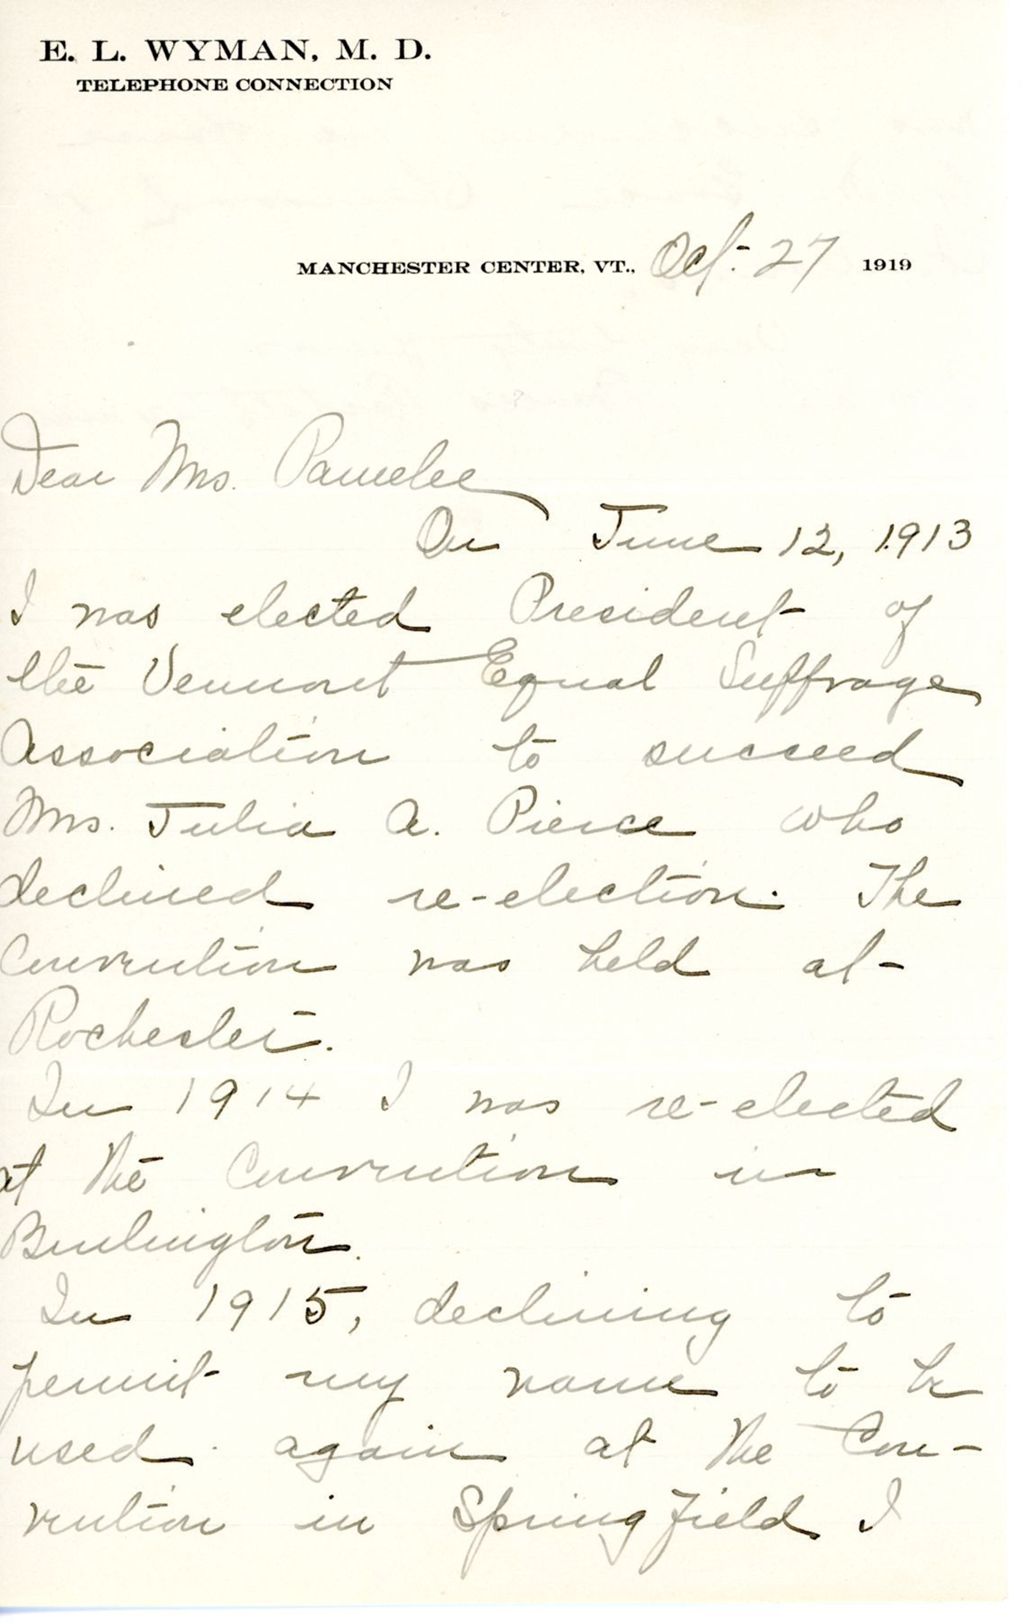 E. L. WYMAN, M. D.
TELEPHONE CONNECTION
MANCHESTER CENTER, VT., Oct. 27 1919
Dear Mrs. Parmelee
On June 12, 1913
I was elected President of
the Vermont Equal Suffrage
Association to succeed
Mrs. Julia A. Pierce who
declined re-election. The
Convention was held at
Rochester.
In 1914 I was re-elected
at the Convention in
Burlington.
In 1915, declining to
permit my name to be
used again at the Con-
vention in Springfield I